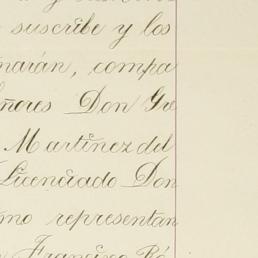 suscribe y los
narán, compa
ñores Don Gre
Martínez del
Licenciado Don
mo representan
Francisco Ró